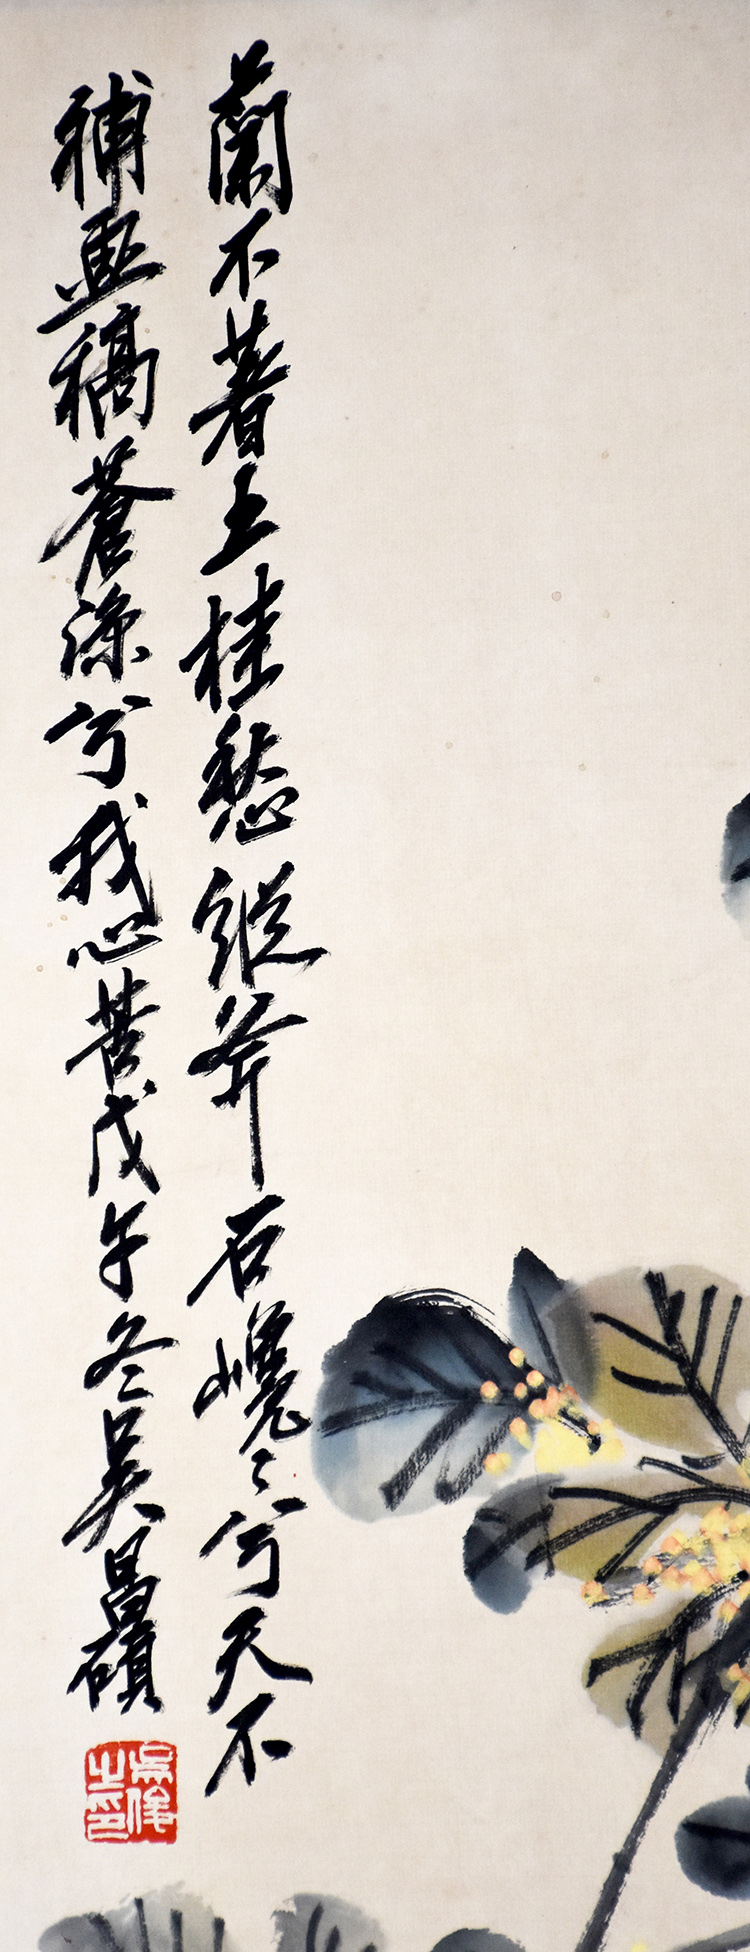 蘭不著土桂愁縱斧石巉〻兮天不
補無稿蒼涼兮我心苦戊午冬吳昌碩
吳俊之印